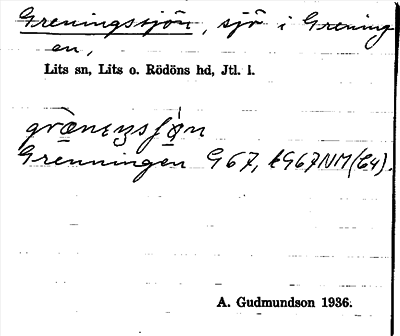 Greningssjön, sjö i Grening
en,
Lits sn, Lits o. Rödöns hd, Jtl. l.
Grenningen G67, kG67NM(C4).
A. Gudmundson 1936.